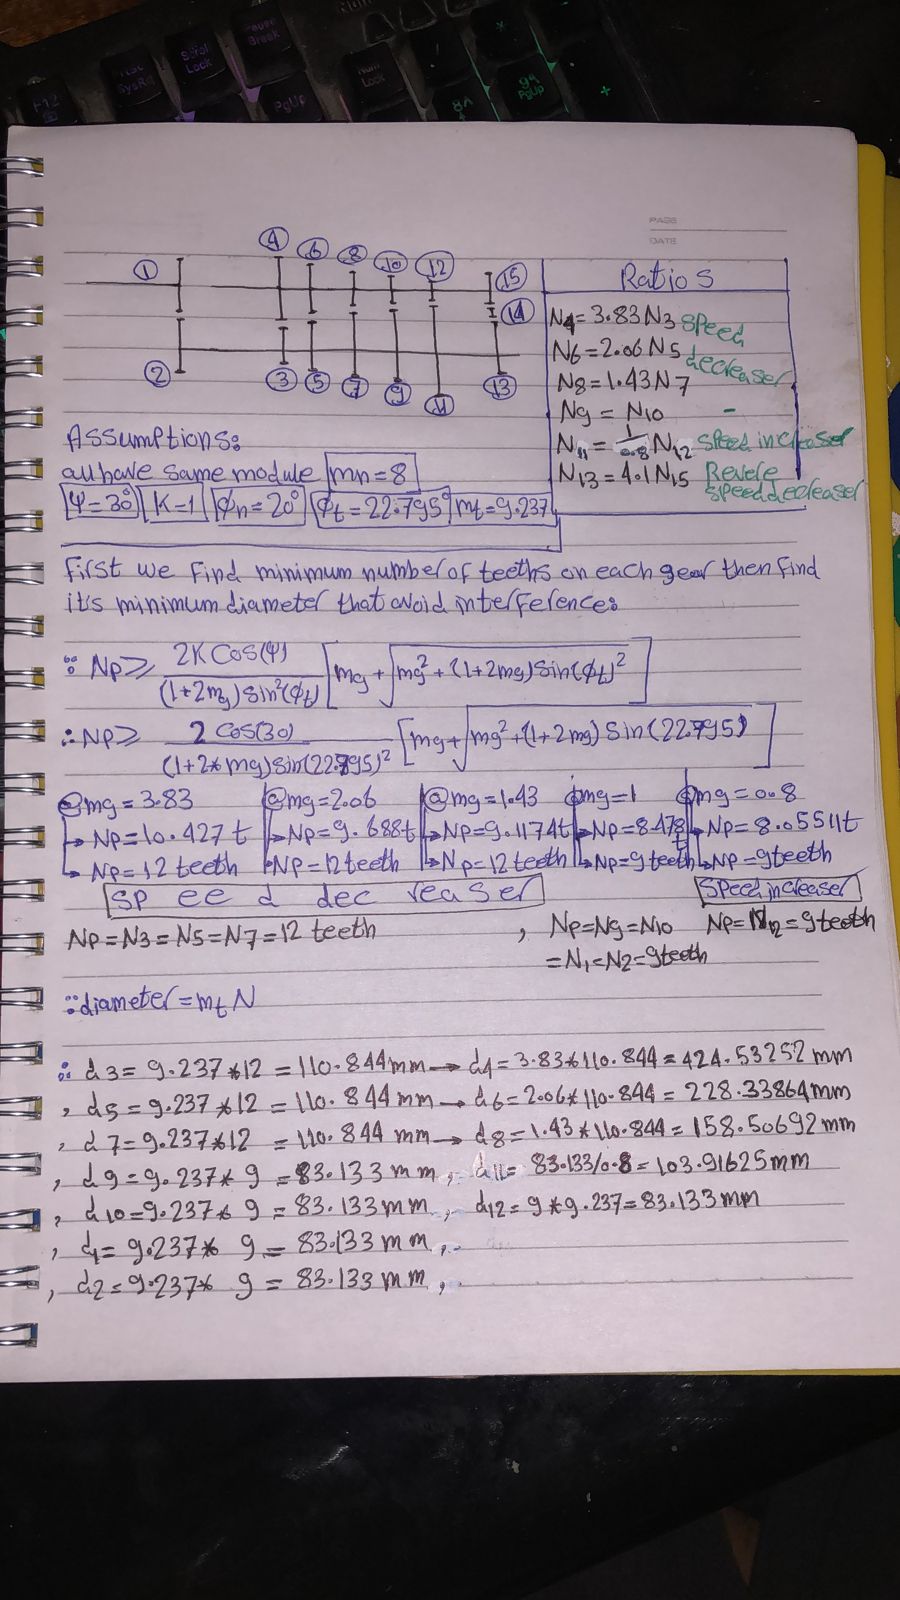 F12
Scroll Lock
Pause Break
Num Lock
PgUp
9
PgUp
+
PAGE
DATE
1 4 6 8 10 12 15
14
2 3 5 7 9 11 13
Ratios
N4=3.83N3 speed
N6=2.06N5 decreaser
N8=1.43N7
N9=N10 -
N11=1/0.8 N12 speed increaser
N13=4.1N15 Revere
speed decreaser
Assumptions:
all have same module mn=8
Ψ=30° K=1 φn=20° φt=22.795° mt=9.237
first we find minimum number of teeths on each gear then find
it's minimum diameter that avoid interference:
∵ Np ≥ 2KCos(Ψ)/((1+2mg)Sin²(φt)) [mg+√(mg²+(1+2mg)Sin(φt)²)]
∴ Np ≥ 2Cos(30)/((1+2*mg)Sin(22.795)²) [mg+√(mg²+(1+2mg)Sin(22.795))]
@mg=3.83 @mg=2.06 @mg=1.43 @mg=1 @mg=0.8
Np=10.427t Np=9.688t Np=9.1174t Np=8.478t Np=8.0551t
Np=12teeth Np=12teeth Np=12teeth Np=9teeth Np=9teeth
speed decreaser speed increaser
Np=N3=N5=N7=12 teeth , Np=N9=N10 Np=N12=9teeth
=N1=N2=9teeth
∵diameter=mtN
∴ d3=9.237*12=110.844mm→d4=3.83*110.844=424.53252mm
, d5=9.237*12=110.844mm→d6=2.06*110.844=228.33864mm
, d7=9.237*12=110.844mm→d8=1.43*110.844=158.50692mm
, d9=9.237*9=83.133mm, d11=83.133/0.8=103.91625mm
, d10=9.237*9=83.133mm, d12=9*9.237=83.133mm
, d1=9.237*9=83.133mm,
, d2=9.237*9=83.133mm,